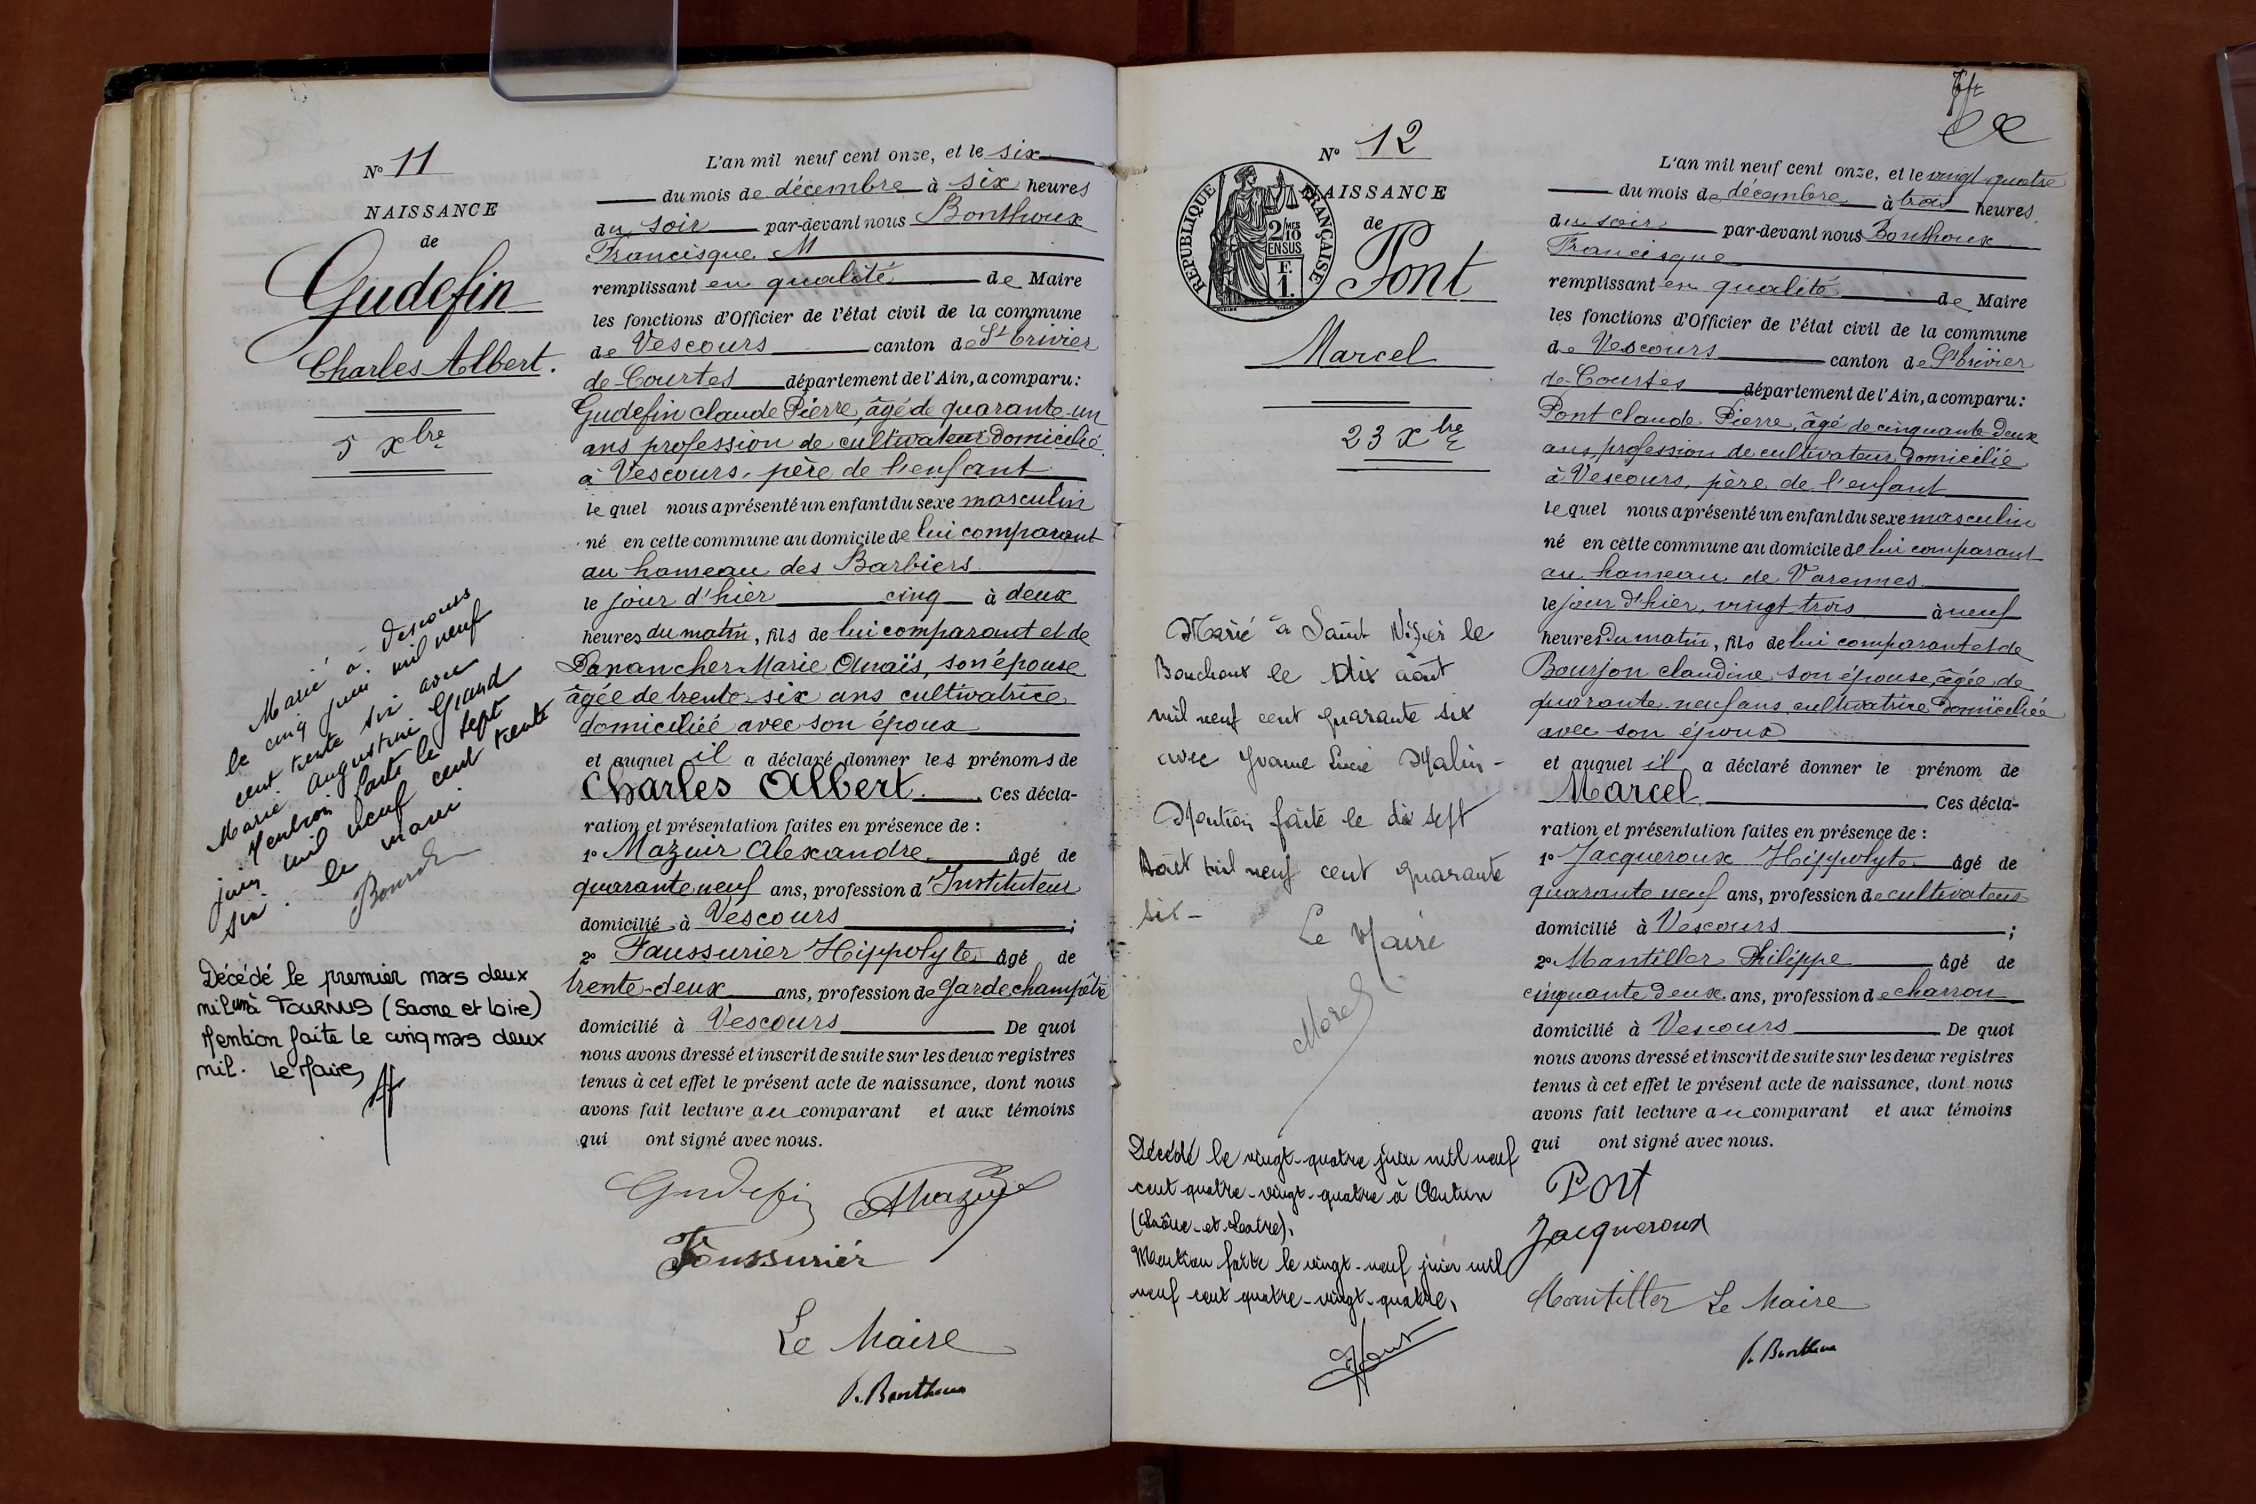 N° 11
NAISSANCE
de
Gudefin
Charles Albert.
5 xbre
Marié à Vescours
le cinq juin mil neuf
cent trente six avec
Marie Augustine Grand
Mention faite le sept
juin mil neuf cent trente
six. le maire
Décédé le premier mars deux
mil un à TOURNUS (Saone et Loire)
Mention faite le cinq mars deux
mil. Le Maire,
L'an mil neuf cent onze, et le six
du mois de décembre à six heures
du soir par-devant nous Bonthoux
Francisque M
remplissant en qualité de Maire
les fonctions d'Officier de l'état civil de la commune
de Vescours canton de St Trivier
de Courtes département de l'Ain, a comparu:
Gudefin claude Pierre, âgé de quarante-un
ans profession de cultivateur domicilié
à Vescours, père de l'enfant
le quel nous a présenté un enfant du sexe masculin
né en cette commune au domicile de lui comparant
au hameau des Barbiers
le jour d'hier cinq à deux
heures du matin, fils de lui comparant et de
Danancher Marie Anaïs, son épouse
âgée de trente-six ans cultivatrice
domiciliée avec son époux
et auquel il a déclaré donner les prénoms de
Charles Albert. Ces décla-
ration et présentation faites en présence de :
1° Mazuir Alexandre âgé de
quarante neuf ans, profession d'Instituteur
domicilié à Vescours ;
2° Faussurier Hippolyte âgé de
trente-deux ans, profession de Garde champêtre
domicilié à Vescours De quoi
nous avons dressé et inscrit de suite sur les deux registres
tenus à cet effet le présent acte de naissance, dont nous
avons fait lecture au comparant et aux témoins
qui ont signé avec nous.
Gudefin AMazuir
Faussurier
Le Maire
F. Bonthoux
N° 12
RÉPUBLIQUE FRANÇAISE
2/10 MES
EN SUS
F.
1.
NAISSANCE
de
Pont
Marcel
23 xbre
Marié à Saint Nizier le
Bouchoux le dix août
mil neuf cent quarante six
avec Yvonne Lucie Malin-
Mention faite le dix sept
Août mil neuf cent quarante
six-
Le Maire
Morel
Décédé le vingt-quatre juin mil neuf
cent quatre-vingt-quatre à Autun
(Saône-et-Loire).
Mention faite le vingt-neuf juin mil
neuf cent quatre-vingt-quatre,
L'an mil neuf cent onze, et le vingt-quatre
du mois de décembre à trois heures
du soir par-devant nous Bonthoux
Francisque
remplissant en qualité de Maire
les fonctions d'Officier de l'état civil de la commune
de Vescours canton de St Trivier
de Courtes département de l'Ain, a comparu:
Pont claude Pierre, âgé de cinquante deux
ans, profession de cultivateur domicilié
à Vescours, père de l'enfant
le quel nous a présenté un enfant du sexe masculin
né en cette commune au domicile de lui comparant
au hameau de Varennes
le jour d'hier, vingt trois à neuf
heures du matin, fils de lui comparant et de
Bourjon claudine son épouse, âgée de
quarante neuf ans cultivatrice domiciliée
avec son époux
et auquel il a déclaré donner le prénom de
Marcel Ces décla-
ration et présentation faites en présence de :
1° Jacqueroux Hippolyte âgé de
quarante neuf ans, profession de cultivateur
domicilié à Vescours ;
2° Mantiller Philippe âgé de
cinquante deux ans, profession de charron
domicilié à Vescours De quoi
nous avons dressé et inscrit de suite sur les deux registres
tenus à cet effet le présent acte de naissance, dont nous
avons fait lecture au comparant et aux témoins
qui ont signé avec nous.
Pont
Jacqueroux
Mantiller Le Maire
F. Bonthoux